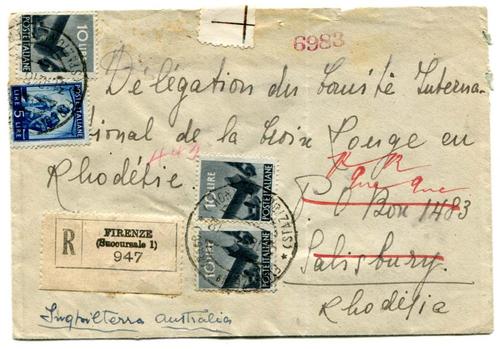 10 LIRE
POSTE ITALIANE
6983
Délégation du Comité Interna
LIRE 5
POSTE ITALIANE
tional de la Croix Rouge en
443
Rhodésie
10 LIRE
POSTE ITALIANE
Que Que
P.O Box 1483
R
FIRENZE
(Succursale 1)
947
10 LIRE
POSTE ITALIANE
Salisbury
Rhodésia
Inghilterra Australia